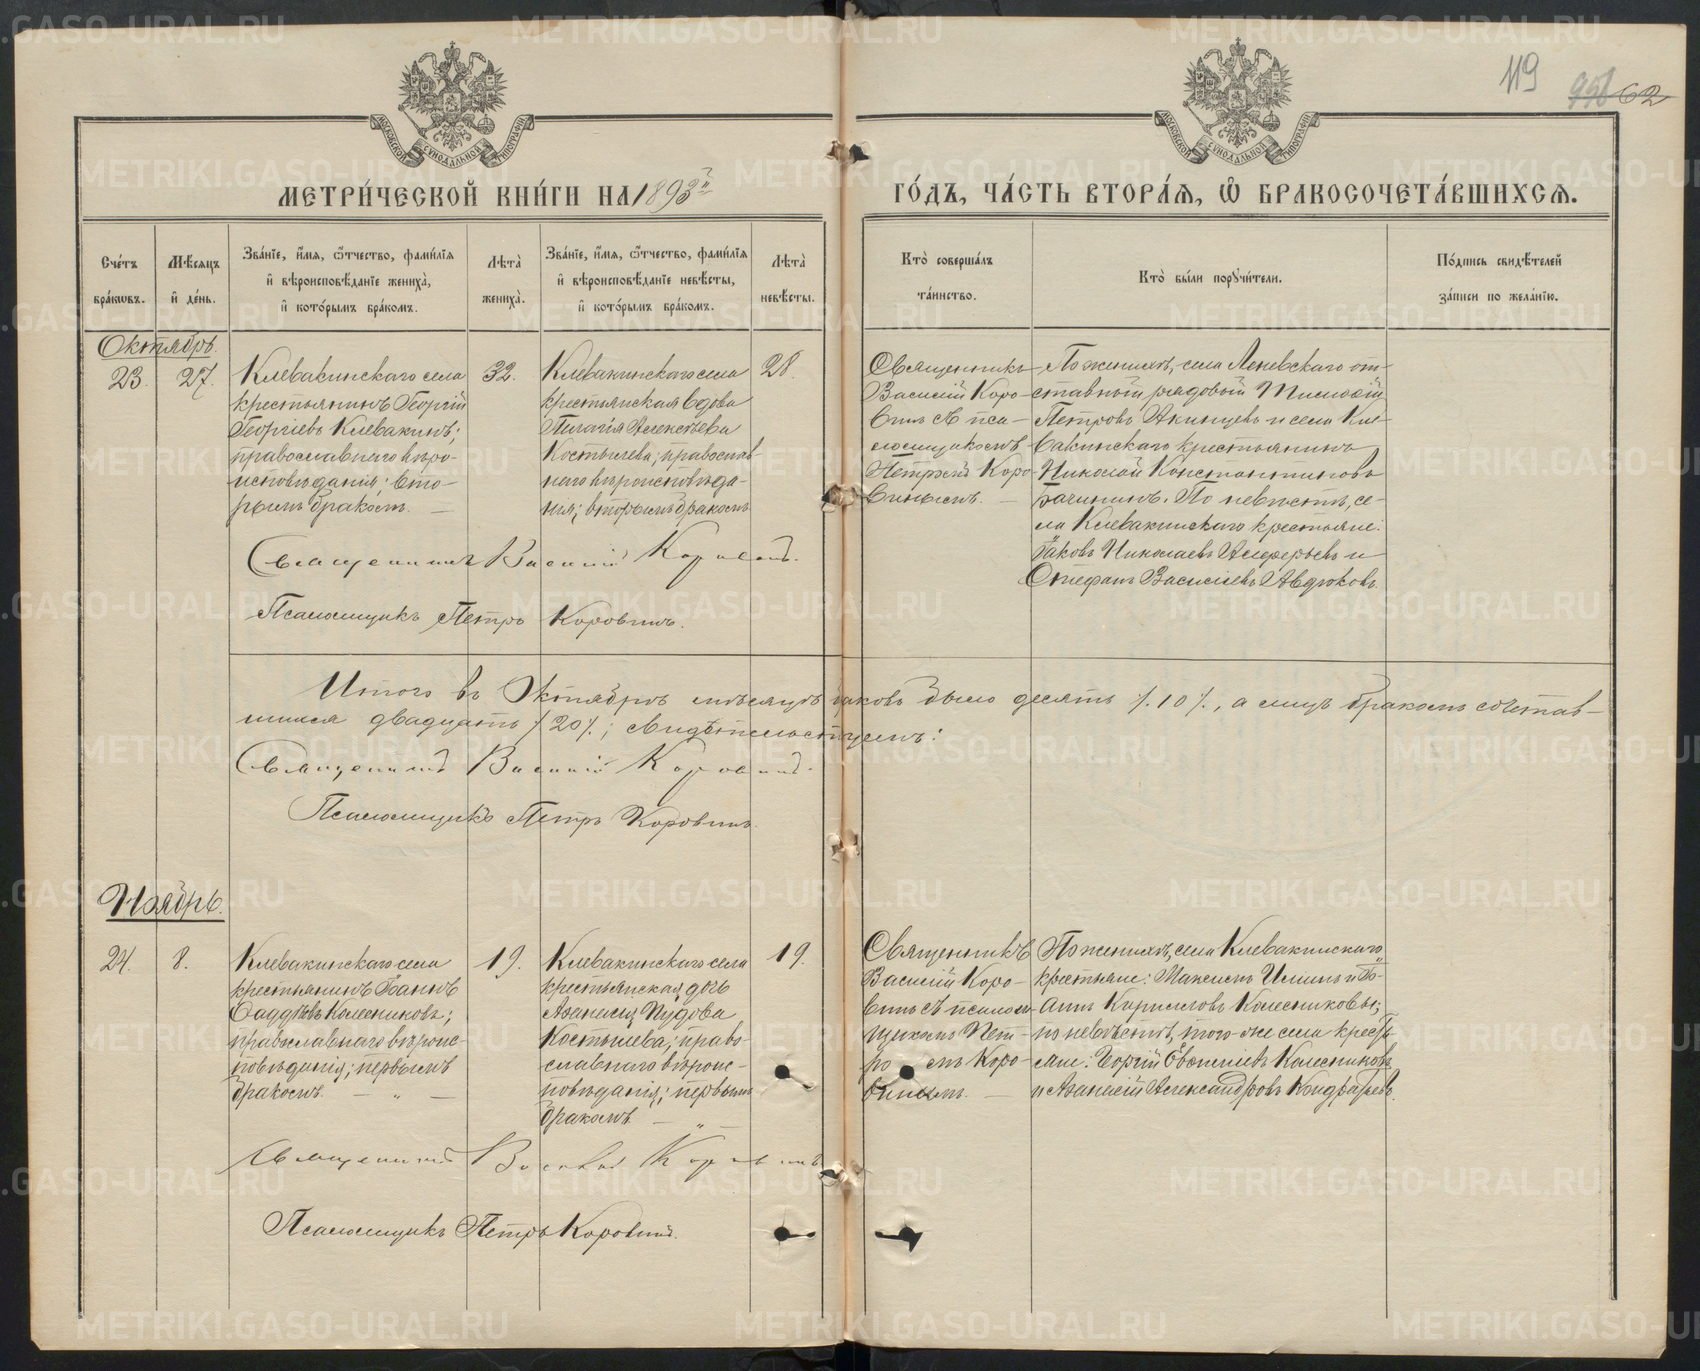 119
958 62
МОСКОВСКОЙ СѴНОДАЛЬНОЙ ТИПОГРАФІИ
МОСКОВСКОЙ СѴНОДАЛЬНОЙ ТИПОГРАФІИ
МЕТРИ́ЧЕСКОЙ КНИ́ГИ НА 1893й
ГО́ДЪ, ЧА́СТЬ ВТОРА́Я, Ѽ БРАКОСОЧЕТА́ВШИХСЯ.
Сче́тъ
бра́кѡвъ.
Мѣ́сяцъ
и҆ де́нь.
Зва́нїе, и҆́мѧ, ѻ҆́тчество, фами́лїѧ
и҆ вѣроисповѣ́данїе жениха̀,
и҆ кото́рымъ бра́комъ.
Лѣта̀
жениха̀.
Зва́нїе, и҆́мѧ, ѻ҆́тчество, фами́лїѧ
и҆ вѣроисповѣ́данїе невѣ́сты,
и҆ кото́рымъ бра́комъ.
Лѣта̀
невѣ́сты.
Кто̀ соверша́лъ
та́инство.
Кто̀ бы́ли поручи́тели.
По́дпись свидѣ́телей
за́писи по жела́нїю.
Октябрь.
23.
27.
Клевакинскаго села
крестьянинъ Георгій
Георгіевъ Клевакинъ;
православнаго вѣро-
исповѣданія; вто-
рымъ бракомъ. —
32.
Клевакинскаго села
крестьянская вдова
Пелагія Алексѣева
Костылева; православ-
наго вѣроисповѣда-
нія; вторымъ бракомъ
28.
Священникъ
Василій Коро-
винъ съ пса-
ломщикомъ
Петромъ Коро-
винымъ. —
По женихѣ, села Леневскаго от-
ставной рядовой Тимофей
Петровъ Акинцевъ и села Кле-
вакинскаго крестьянинъ
Николай Константиновъ
По невѣстѣ, се-
ла Клевакинскаго крестьяне:
Іаковъ Николаевъ Алферьевъ и
Стефанъ Васильевъ Авдюковъ.
Священникъ Василій Коровинъ.
Псаломщикъ Петръ Коровинъ.
Итого въ Октябрѣ мѣсяцѣ браковъ было десять /.10/., а лицъ бракомъ сочетав-
шихся двадцать /20/.; свидѣтельствуемъ:
Священникъ Василій Коровинъ.
Псаломщикъ Петръ Коровинъ.
Ноябрь.
24.
8.
Клевакинскаго села
крестьянинъ Іоаннъ
Фаддѣевъ Колесниковъ;
православнаго вѣроис-
повѣданія; первымъ
бракомъ. — „ —
19.
Клевакинскаго села
крестьянская дочь
Аѳанасія Пудова
Костылева; право-
славнаго вѣроис-
повѣданія; первымъ
бракомъ — „ —
19.
Священникъ
Василій Коро-
винъ съ псалом-
щикомъ Пет-
ромъ Коро-
винымъ. —
По женихѣ, села Клевакинскаго
крестьяне: Максимъ Ильинъ и Іо-
аннъ Кирилловъ Колесниковы;
по невѣстѣ, того-же села кресть-
яне: Георгій Евгеніевъ Колесниковъ
и Аѳанасій Александровъ Кондратьевъ.
Священникъ Василій Коровинъ
Псаломщикъ Петръ Коровинъ.
METRIKI.GASO-URAL.RU